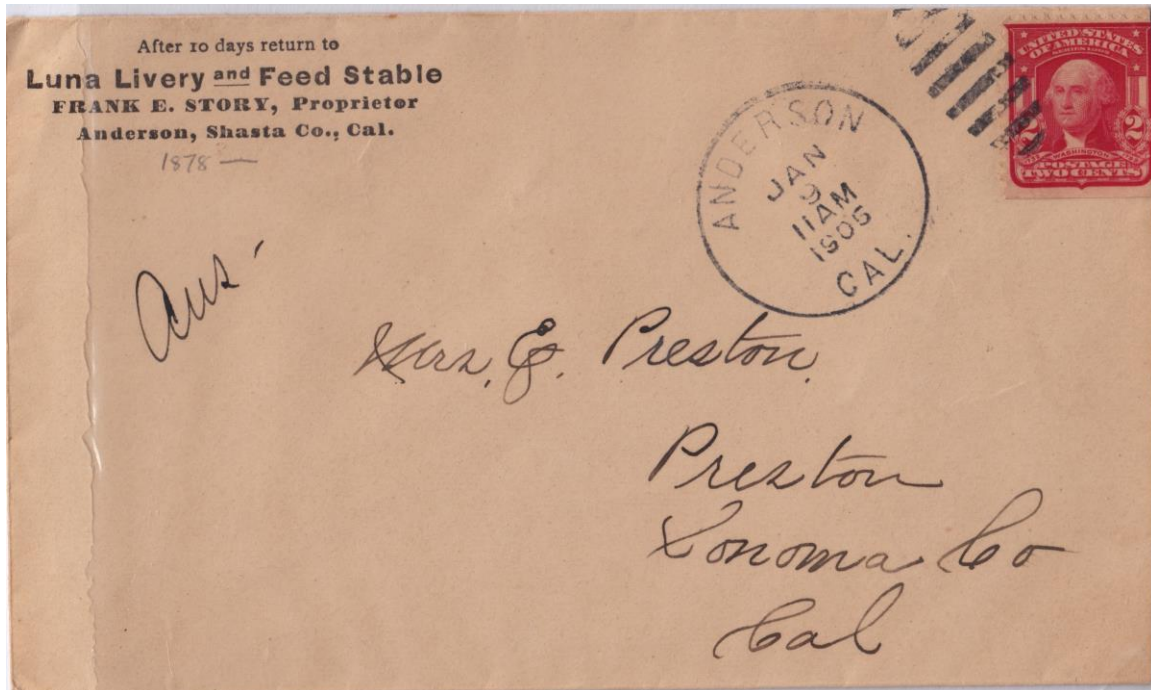 After 10 days return to
Luna Livery and Feed Stable
FRANK E. STORY, Proprietor
Anderson, Shasta Co., Cal.
1878 —
Ans -
ANDERSON
JAN
9
11AM
1905
CAL.
UNITED STATES
OF AMERICA
SERIES 1902
2 2
WASHINGTON
POSTAGE
TWO CENTS
Mrs. E. Preston.
Preston
Sonoma Co
Cal